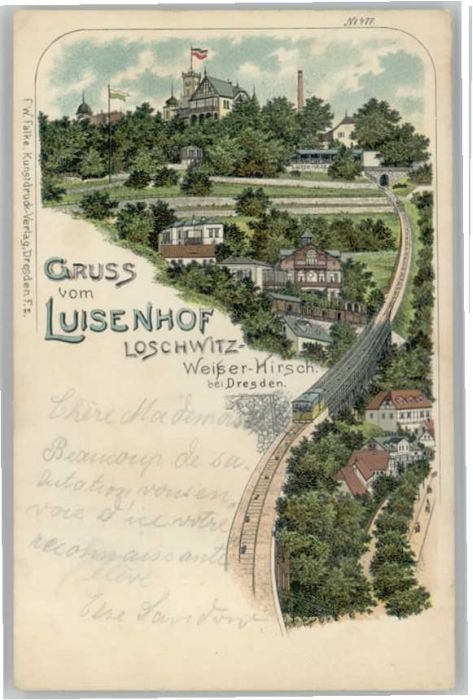 No 477.
F. W. Falke, Kunstdruck-Verlag, Dresden, F. 2.
GRUSS
VOM
LUISENHOF
LOSCHWITZ-
Weißer-Hirsch.
bei Dresden.
Chère Mademois
Beaucoup de sa-
lutation vous en-
voie d'ice votre
reconnaissante
élève